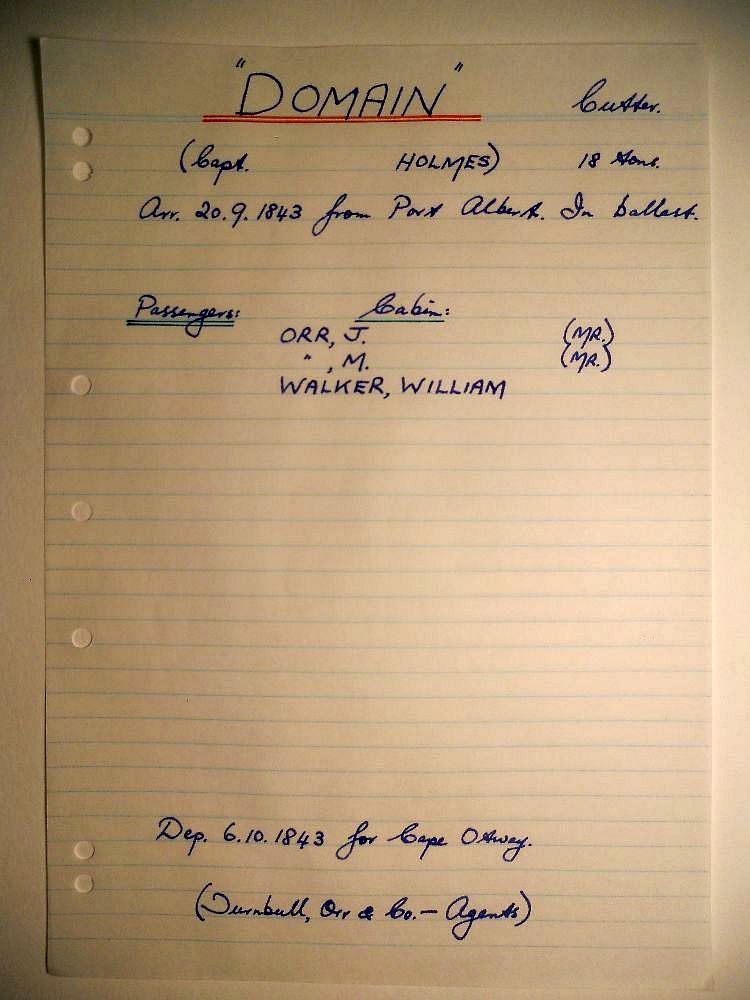 "DOMAIN" Cutter.
(Capt. HOLMES) 18 tons.
Arr. 20.9.1843 from Port Albert. In ballast.
Passengers: Cabin:
ORR, J. (MR.)
" , M. (MR.)
WALKER, WILLIAM
Dep. 6.10.1843 for Cape Otway.
(Turnbull, Orr & Co. - Agents)